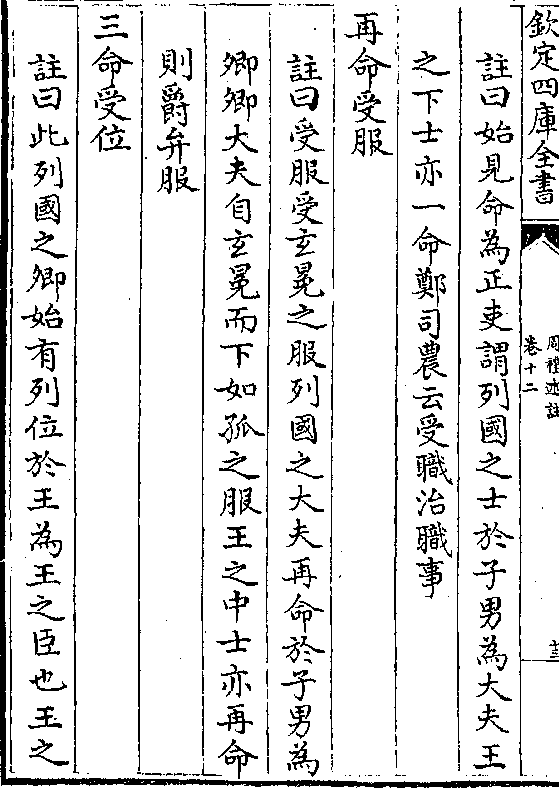 欽定四庫全書
周禮述註
卷十二
十三
註曰始見命為正吏謂列國之士於子男為大夫王
之下士亦一命鄭司農云受職治職事
再命受服
註曰受服受玄冕之服列國之大夫再命於子男為
卿卿大夫自玄冕而下如孤之服王之中士亦再命
則爵弁服
三命受位
註曰此列國之卿始有列位於王為王之臣也王之